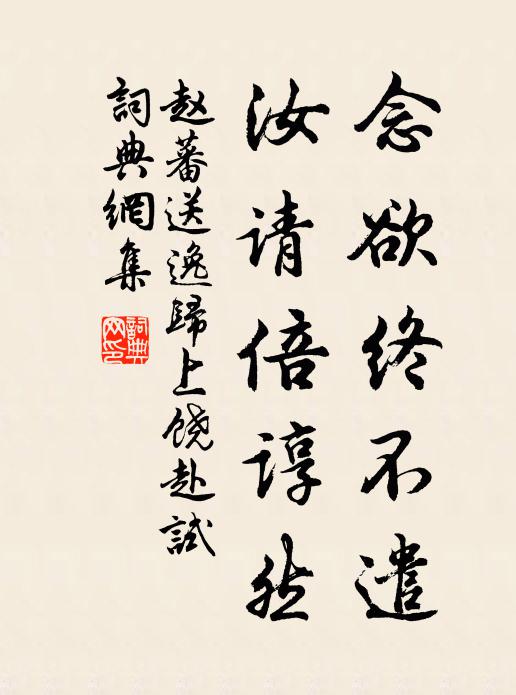 念欲终不遣
汝请倍谆然
赵蕃送逸歸上饶赴試
詞典網集
詞典网印